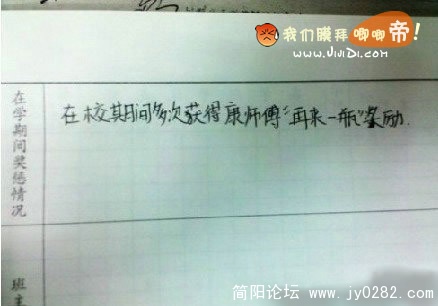 我们膜拜唧唧帝!
www.JiviDi.com
在学期间奖惩情况
在校期间多次获得康师傅“再来一瓶”奖励.
班主
简阳论坛 www.jy0282.com